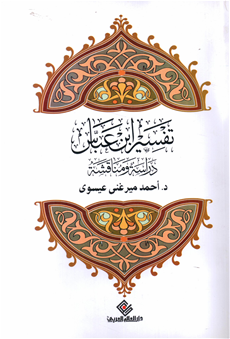 تفسير ابن عباس
دراسة ومناقشة
د. أحمد مير غنى عيسوى
دار العالم العربى